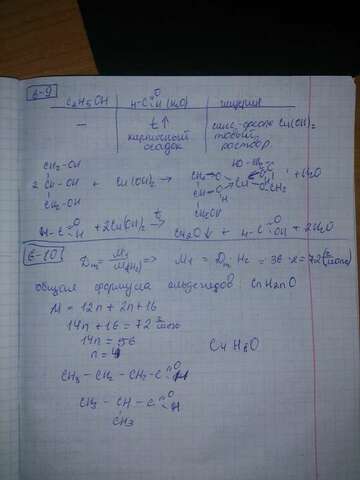 6-9
C₂H₅OH | H-C=O H (H₂O) | глицерин
— | t↑ кирпичный осадок | Cu(OH)₂ раствор
CH₂-OH
2 CH-OH + Cu(OH)₂ →
CH₂-OH
H-C=O H + 2Cu(OH)₂ →t Cu₂O↓ + H-C=O OH + 2H₂O
6-10
M₁ = D H₂ = 36·2 = 72 (г/моль)
общая формула альдегидов: CnH2nO
M = 12n + 2n + 16
14n + 16 = 72 г/моль
14n = 56
n = 4
C₄H₈O
CH₃ - CH₂ - CH₂ - C=O H
CH₃ - CH - C=O H
CH₃